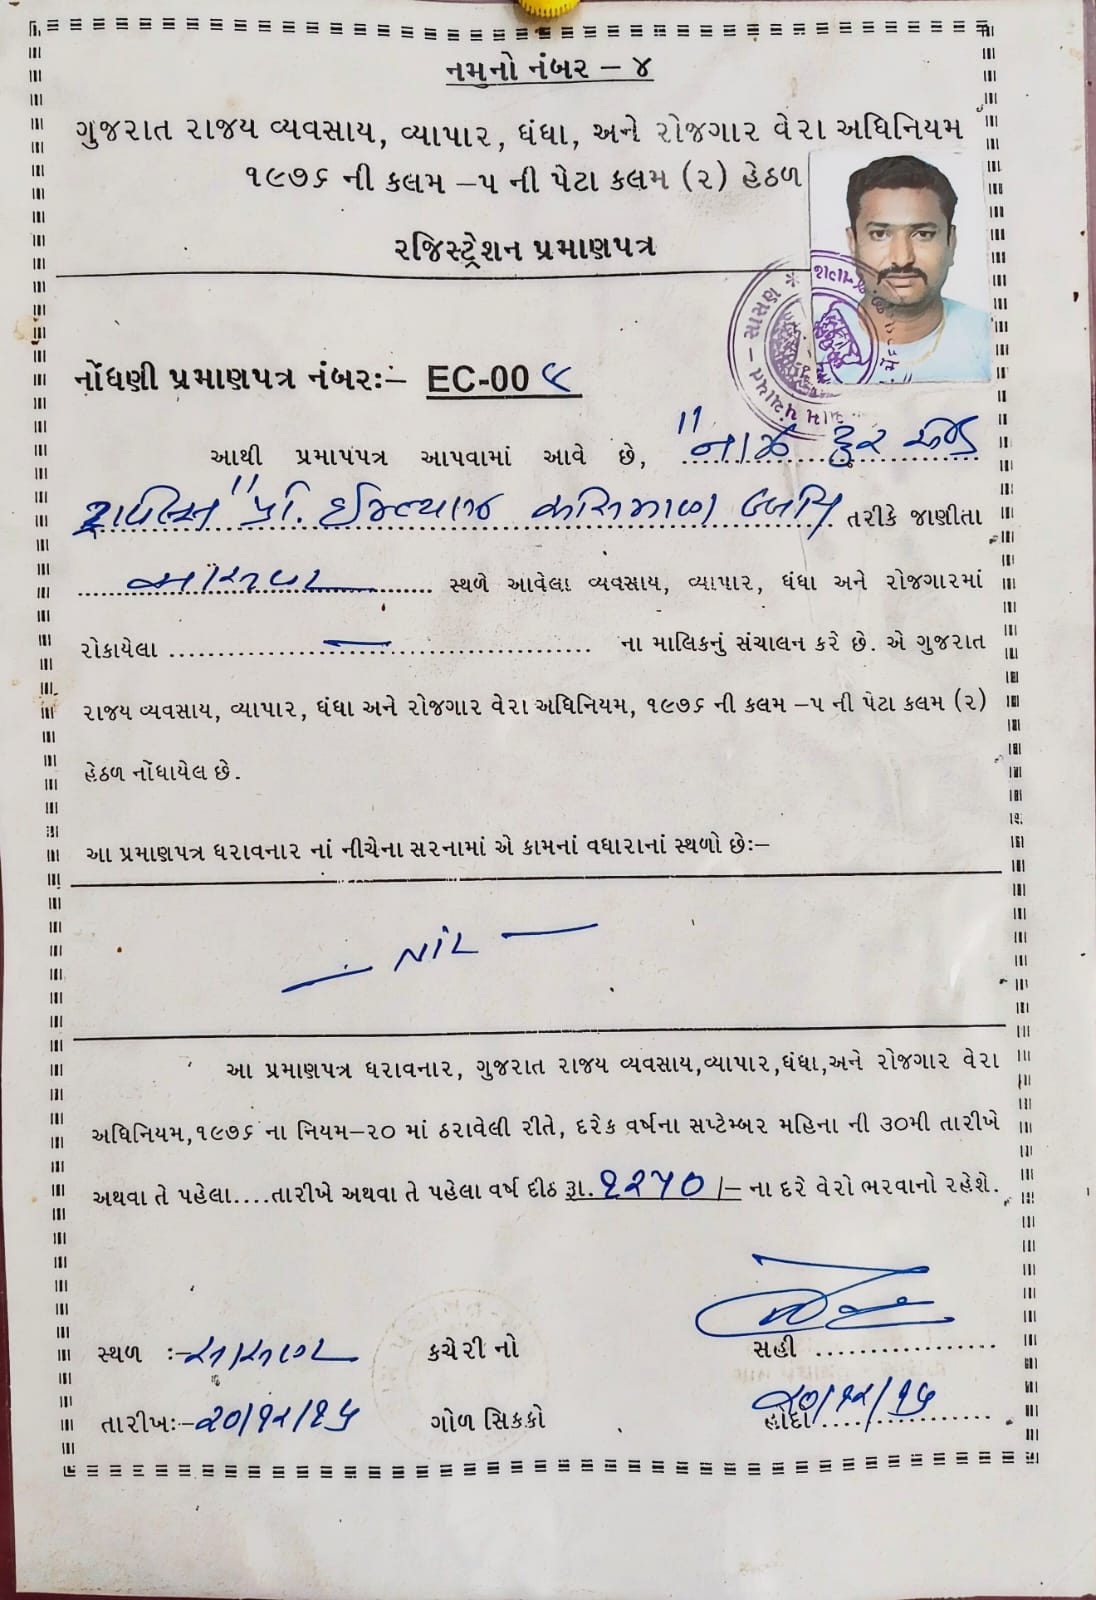 નમુનો નંબર – ૪
ગુજરાત રાજય વ્યવસાય, વ્યાપાર, ધંધા, અને રોજગાર વેરા અધિનિયમ
૧૯૭૬ ની કલમ –૫ ની પેટા કલમ (૨) હેઠળ
રજિસ્ટ્રેશન પ્રમાણપત્ર
નોંધણી પ્રમાણપત્ર નંબરઃ– EC-00૯
આથી પ્રમાપપત્ર આપવામાં આવે છે, "નાઝ ટુર એન્ડ
ટ્રાવેલ્સ" પ્રો. ઈમ્તિયાજ તરીકે જાણીતા
સ્થળે આવેલા વ્યવસાય, વ્યાપાર, ધંધા અને રોજગારમાં
રોકાયેલા ........ — ........ ના માલિકનું સંચાલન કરે છે. એ ગુજરાત
રાજય વ્યવસાય, વ્યાપાર, ધંધા અને રોજગાર વેરા અધિનિયમ, ૧૯૭૬ ની કલમ –૫ ની પેટા કલમ (૨)
હેઠળ નોંધાયેલ છે.
આ પ્રમાણપત્ર ધરાવનાર નાં નીચેના સરનામાં એ કામનાં વધારાનાં સ્થળો છેઃ–
— NIL —
આ પ્રમાણપત્ર ધરાવનાર, ગુજરાત રાજય વ્યવસાય,વ્યાપાર,ધંધા,અને રોજગાર વેરા
અધિનિયમ,૧૯૭૬ ના નિયમ–૨૦ માં ઠરાવેલી રીતે, દરેક વર્ષના સપ્ટેમ્બર મહિના ની ૩૦મી તારીખે
અથવા તે પહેલા....તારીખે અથવા તે પહેલા વર્ષ દીઠ રૂા. ૧૨૫૦ /– ના દરે વેરો ભરવાનો રહેશે.
સ્થળ :– સાસણ કચેરી નો સહી ..................
તારીખઃ– ૨૦/૧૨/૧૫ ગોળ સિકકો હોદા ૨૦/૧૨/૧૫
ગ્રામ પંચાયત – સાસણ *